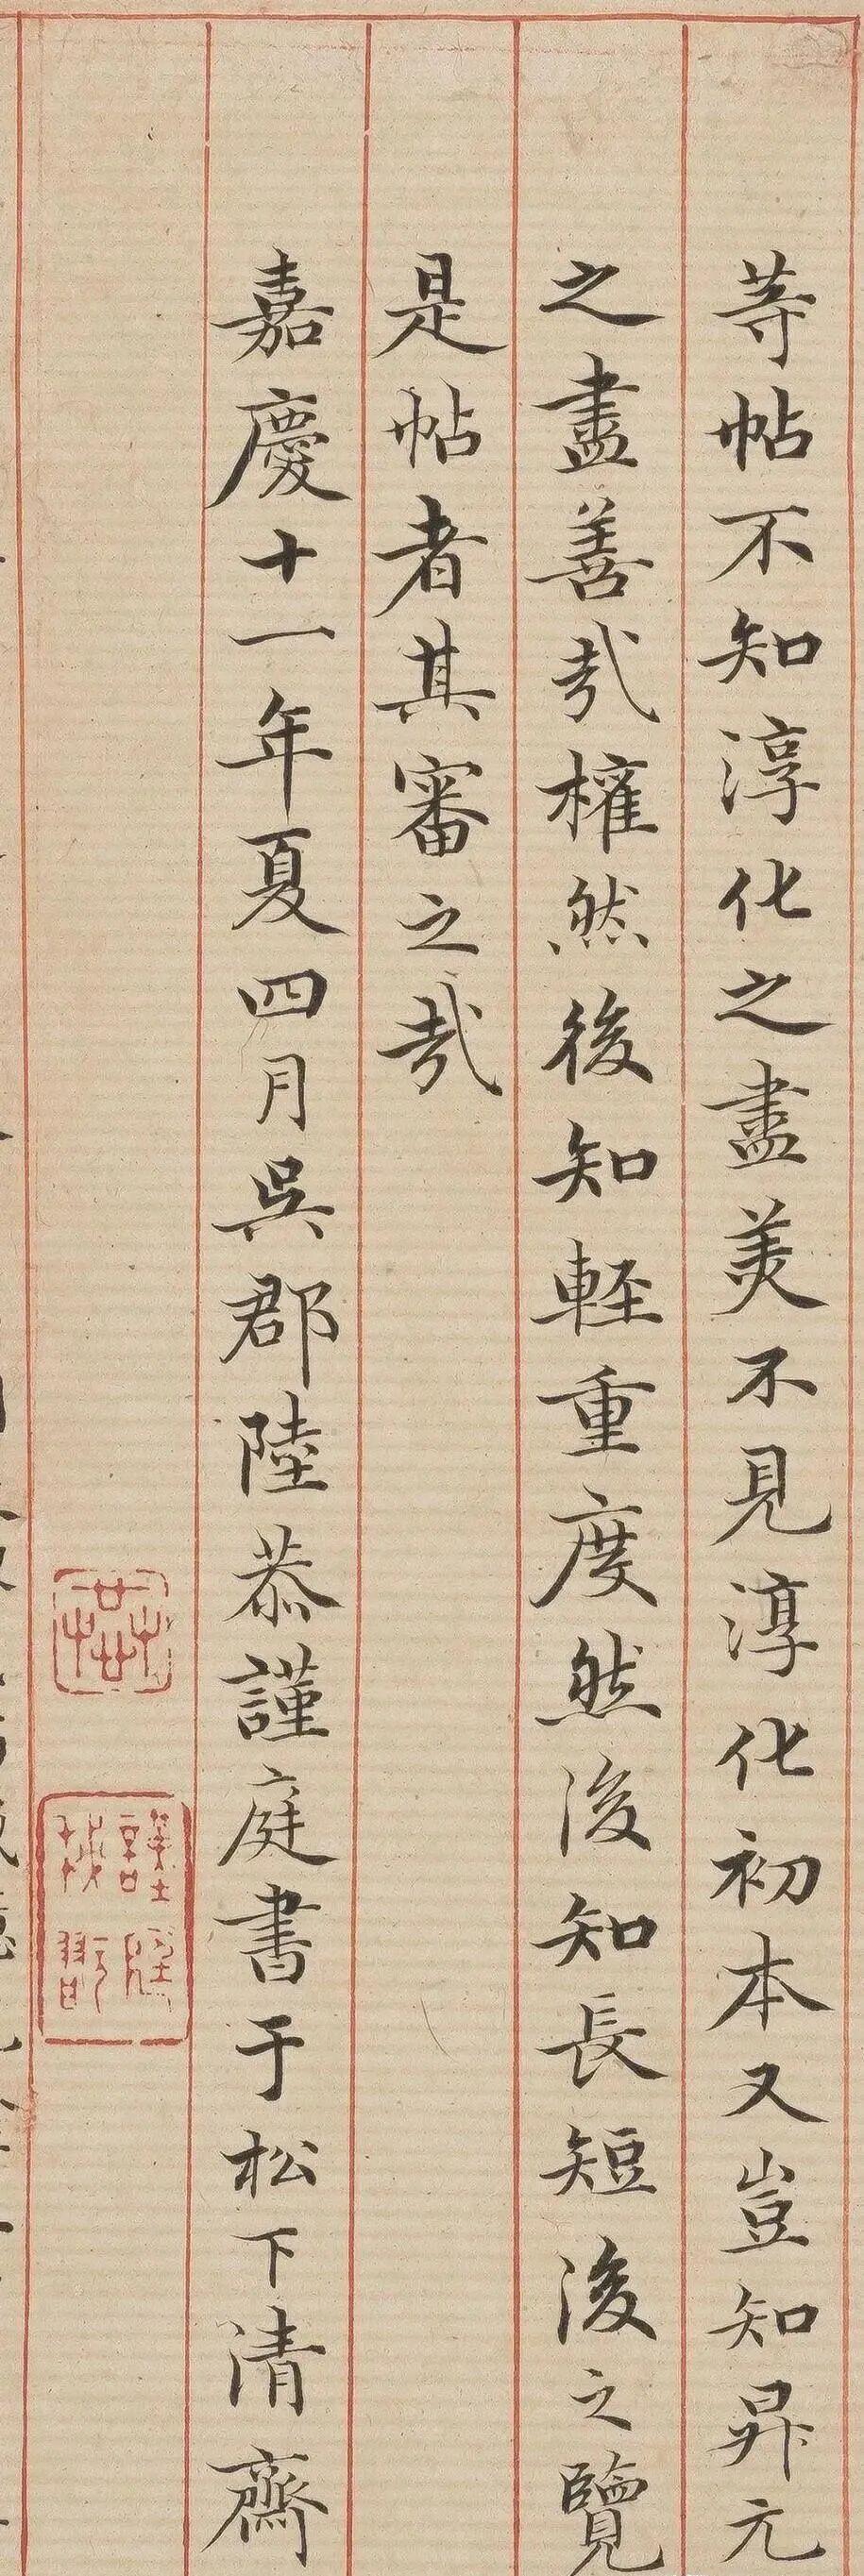 等帖不知淳化之盡美不見淳化初本又豈知昇元
之盡善哉權然後知輕重度然後知長短後之覽
是帖者其審之哉
嘉慶十一年夏四月吳郡陸恭謹庭書于松下清齋